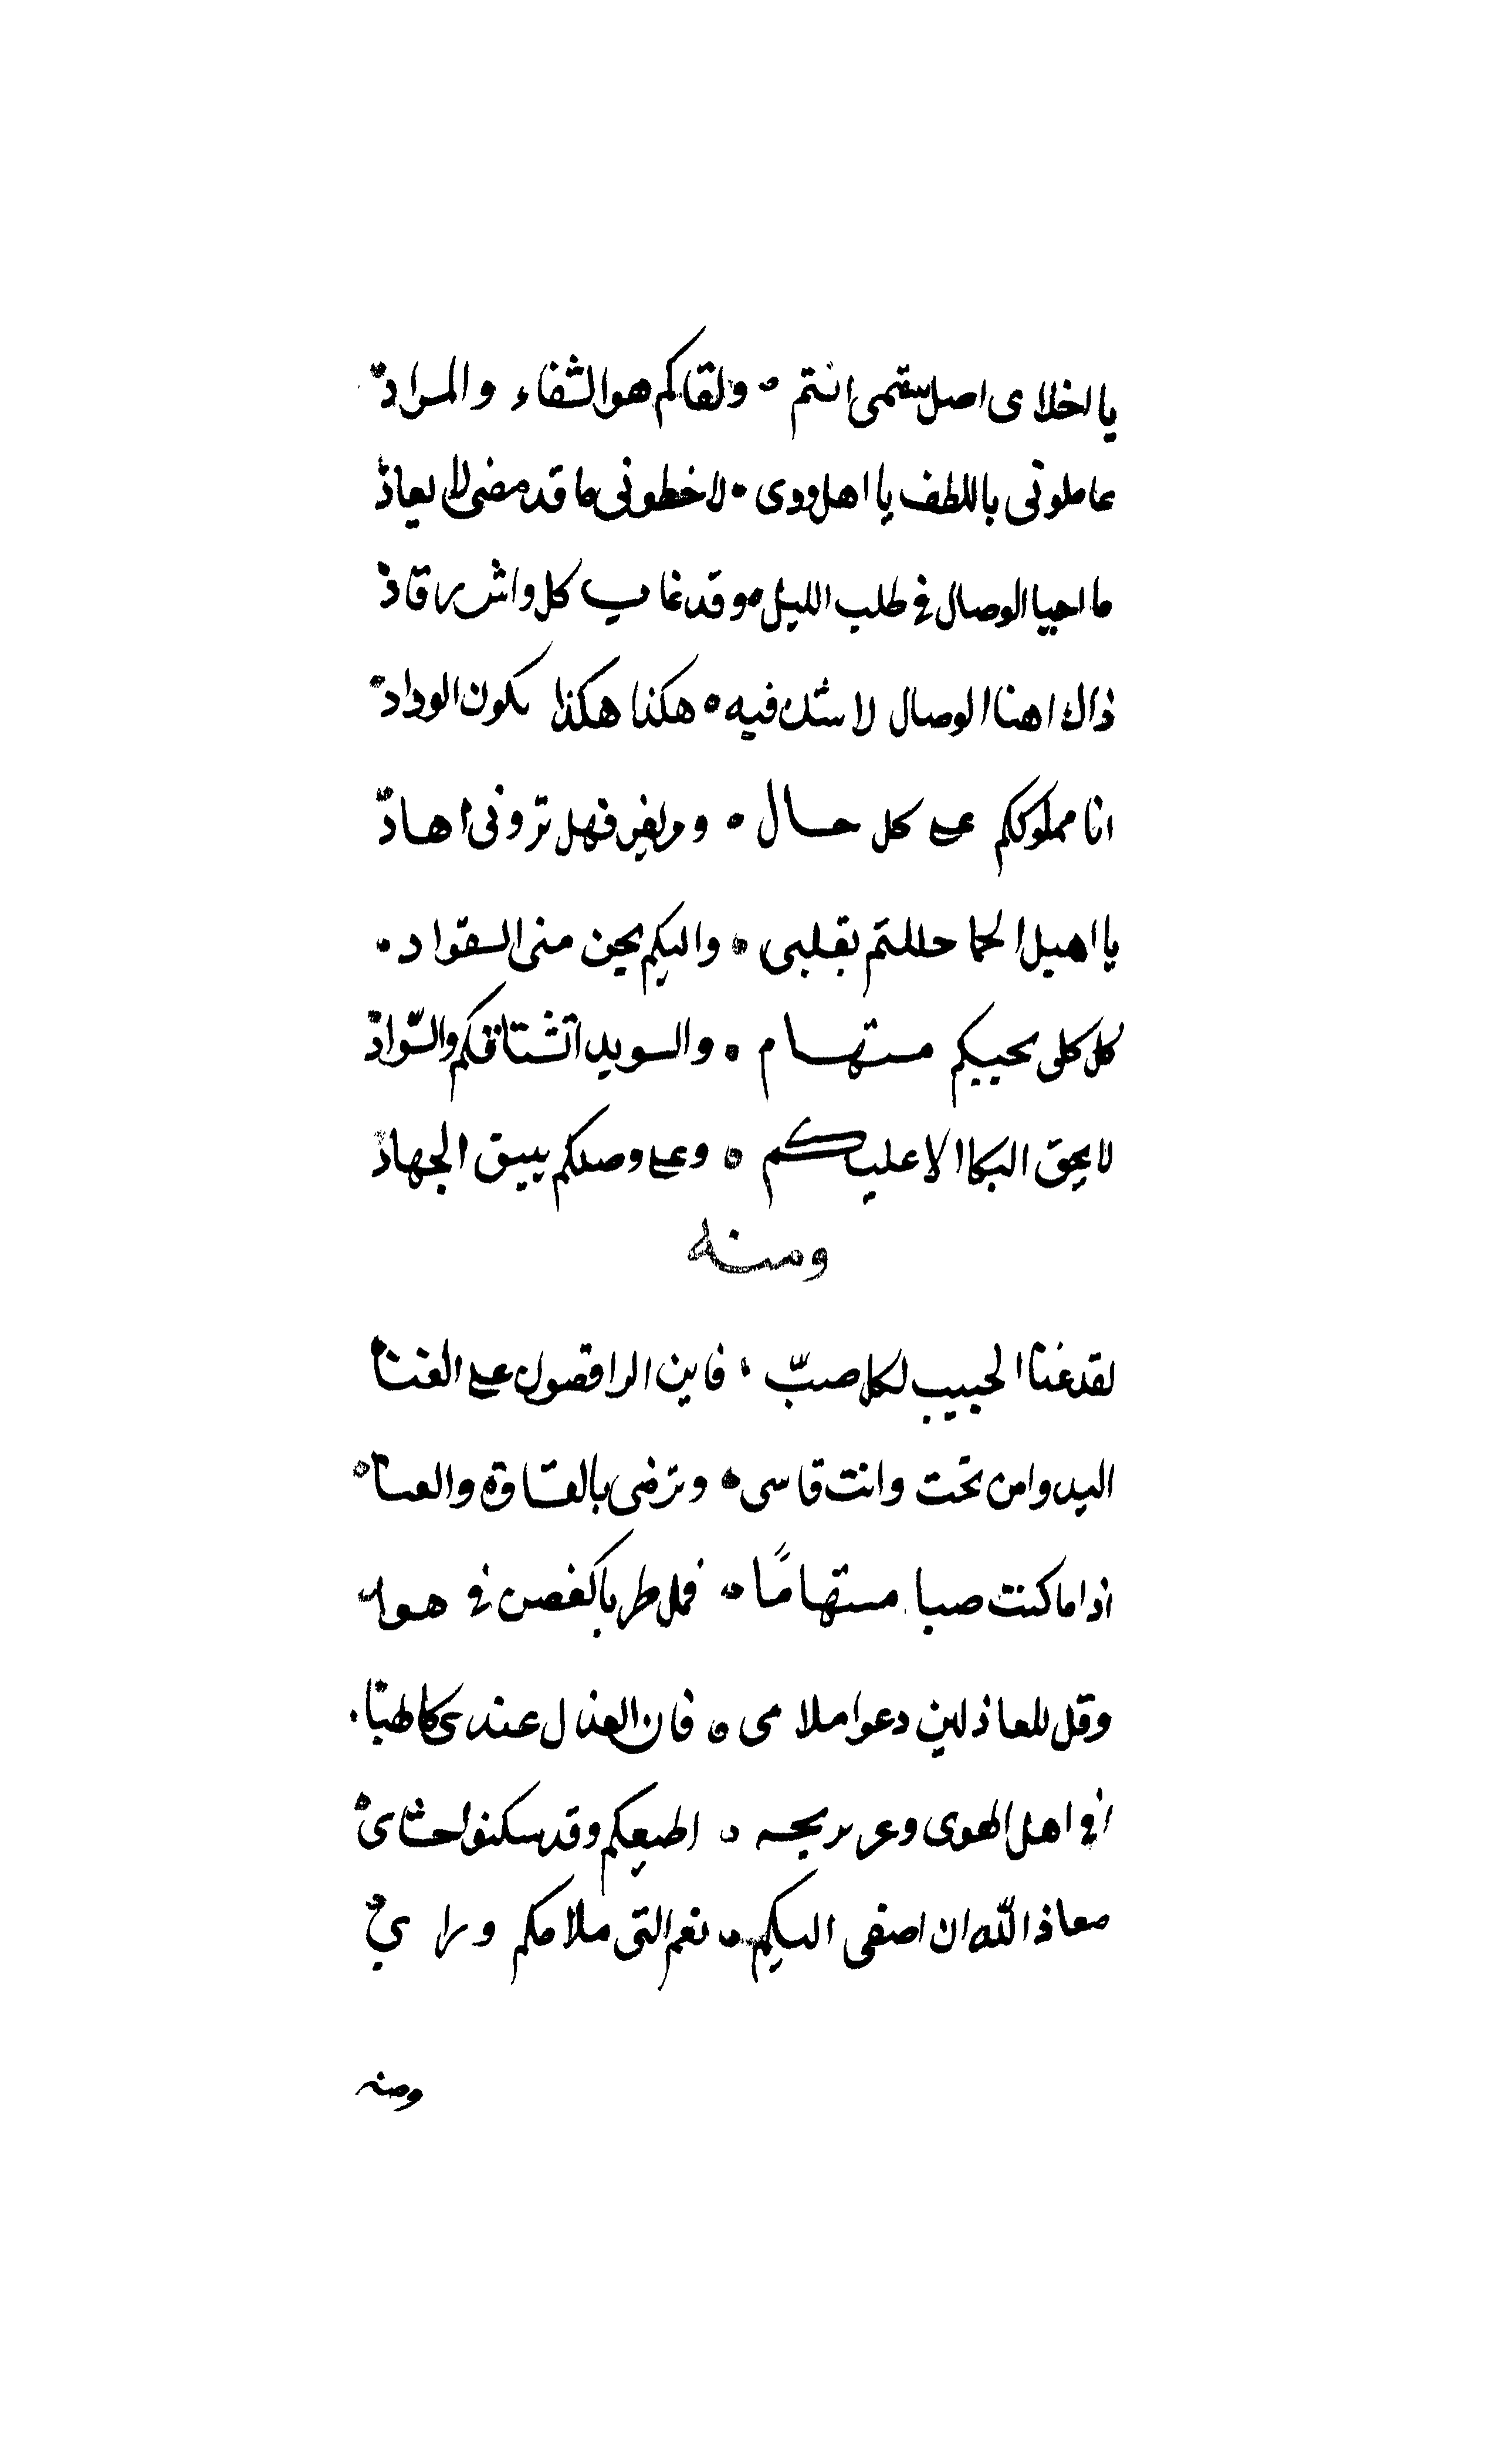 يا اخلاى اصل سقمى انتم ۰ ولقاكم هو الشفاء والمراد
عاملونى باللطف يا اهل ودى ۰ لا خطونى ما قد مضى لا يعاد
ما احيا الوصال فى طلب الليل وقد غاب كل واش رقاد
ذاك اهنا الوصال لا شك فيه ۰ هكذا هكذا يكون الوداد
انا مملوككم على كل حال ۰ ومريض فهل ترونى اهاد
يا اهيل الحما حللتم بقلبى ۰ واليكم يحن منى الفواد ۰
كل كلى بحبكم مستهام ۰ والسويدا تشتاقكم والسّواد
لا يحق البكا الا عليكم ۰ وعلى وصلكم يبق الجهاد
ومنه
لقد غنا الحبيب لكل صبّ ۰ فاين الراقصون على الغنا
اليد وامن تحت وانت قاسى ۰ وترضى بالقساوة والعنا
اذا ما كنت صبا مستهامًا ۰ فمل طربا كغصن فى هواء
وقل للعاذلين دعوا ملامى ۰ فان العذل عندى كالهبا ۰
افى اهل الهوى وعريب نجد ۰ اطيعكم وقد سكنوا حشاى
معاذ الله ان اصغى اليكم ۰ نعم القى ملامكم وراى
ومنه